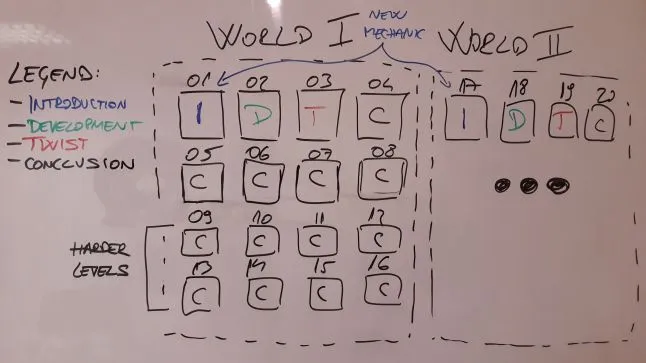 WORLD I
NEW
MECHANIC
WORLD II
LEGEND:
- INTRODUCTION
- DEVELOPMENT
- TWIST
- CONCLUSION
01 02 03 04
I D T C
05 06 07 08
C C C C
09 10 11 12
C C C C
13 14 15 16
C C C C
HARDER
LEVELS
17 18 19 20
I D T C